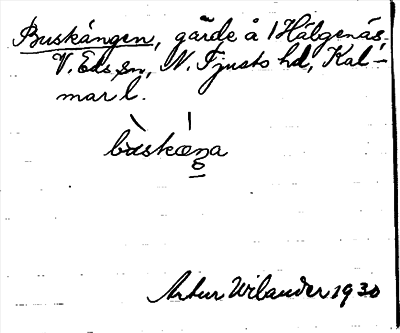 Buskängen, gärde å 1 Hälgenäs.
V. Eds sn, N. Tjusts hd, Kal-
mar l.
Artur Wilander 1930